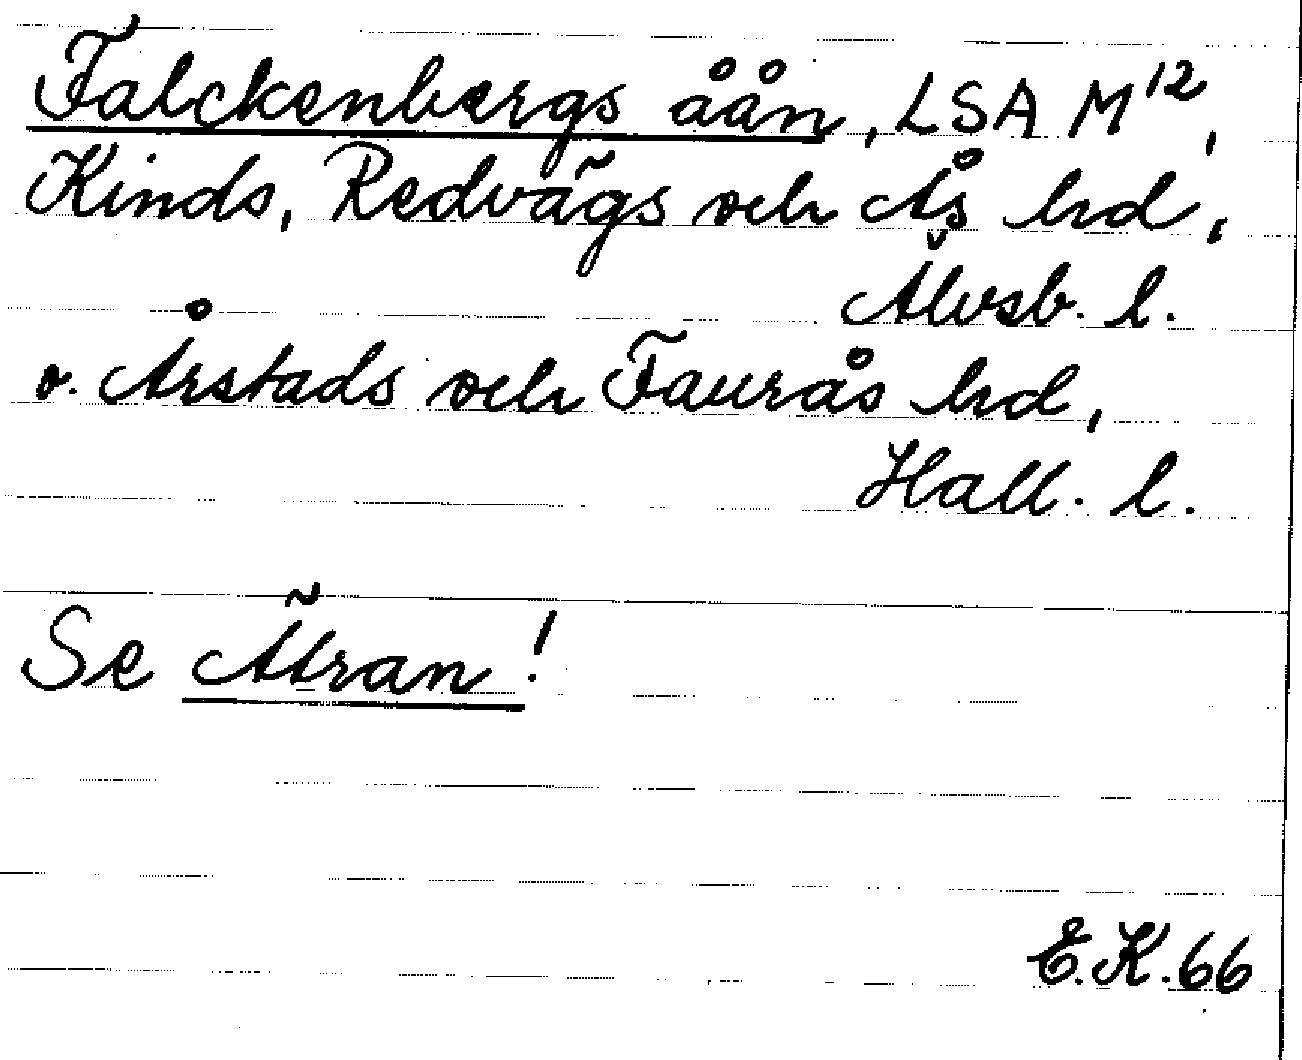 Falckenbergs åån, LSA M¹²,
Kinds, Redvägs och Ås hrd,
Älvsb. l.
o. Årstads och Faurås hrd,
Hall. l.
Se Ätran!
E.K.66